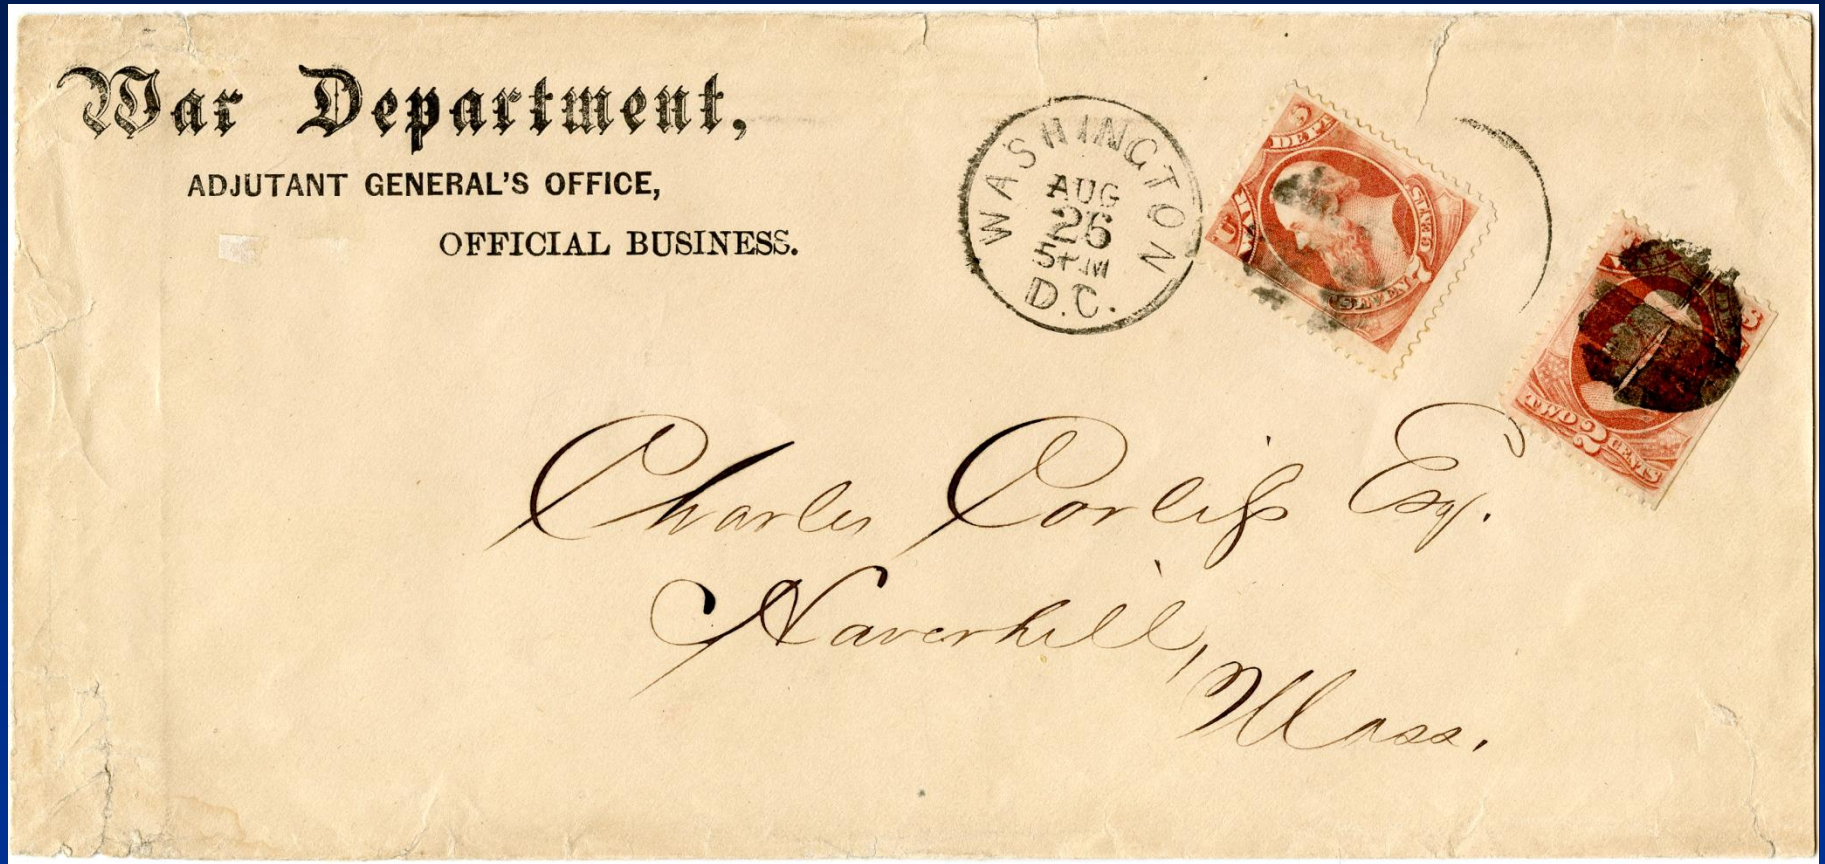 War Department,
ADJUTANT GENERAL'S OFFICE,
OFFICIAL BUSINESS.
WASHINGTON
AUG
26
5 PM
D.C.
DEPT
SEVEN
7
STATES
TWO 2 CENTS
Charles Corliss Esq.
Haverhill,
Mass.